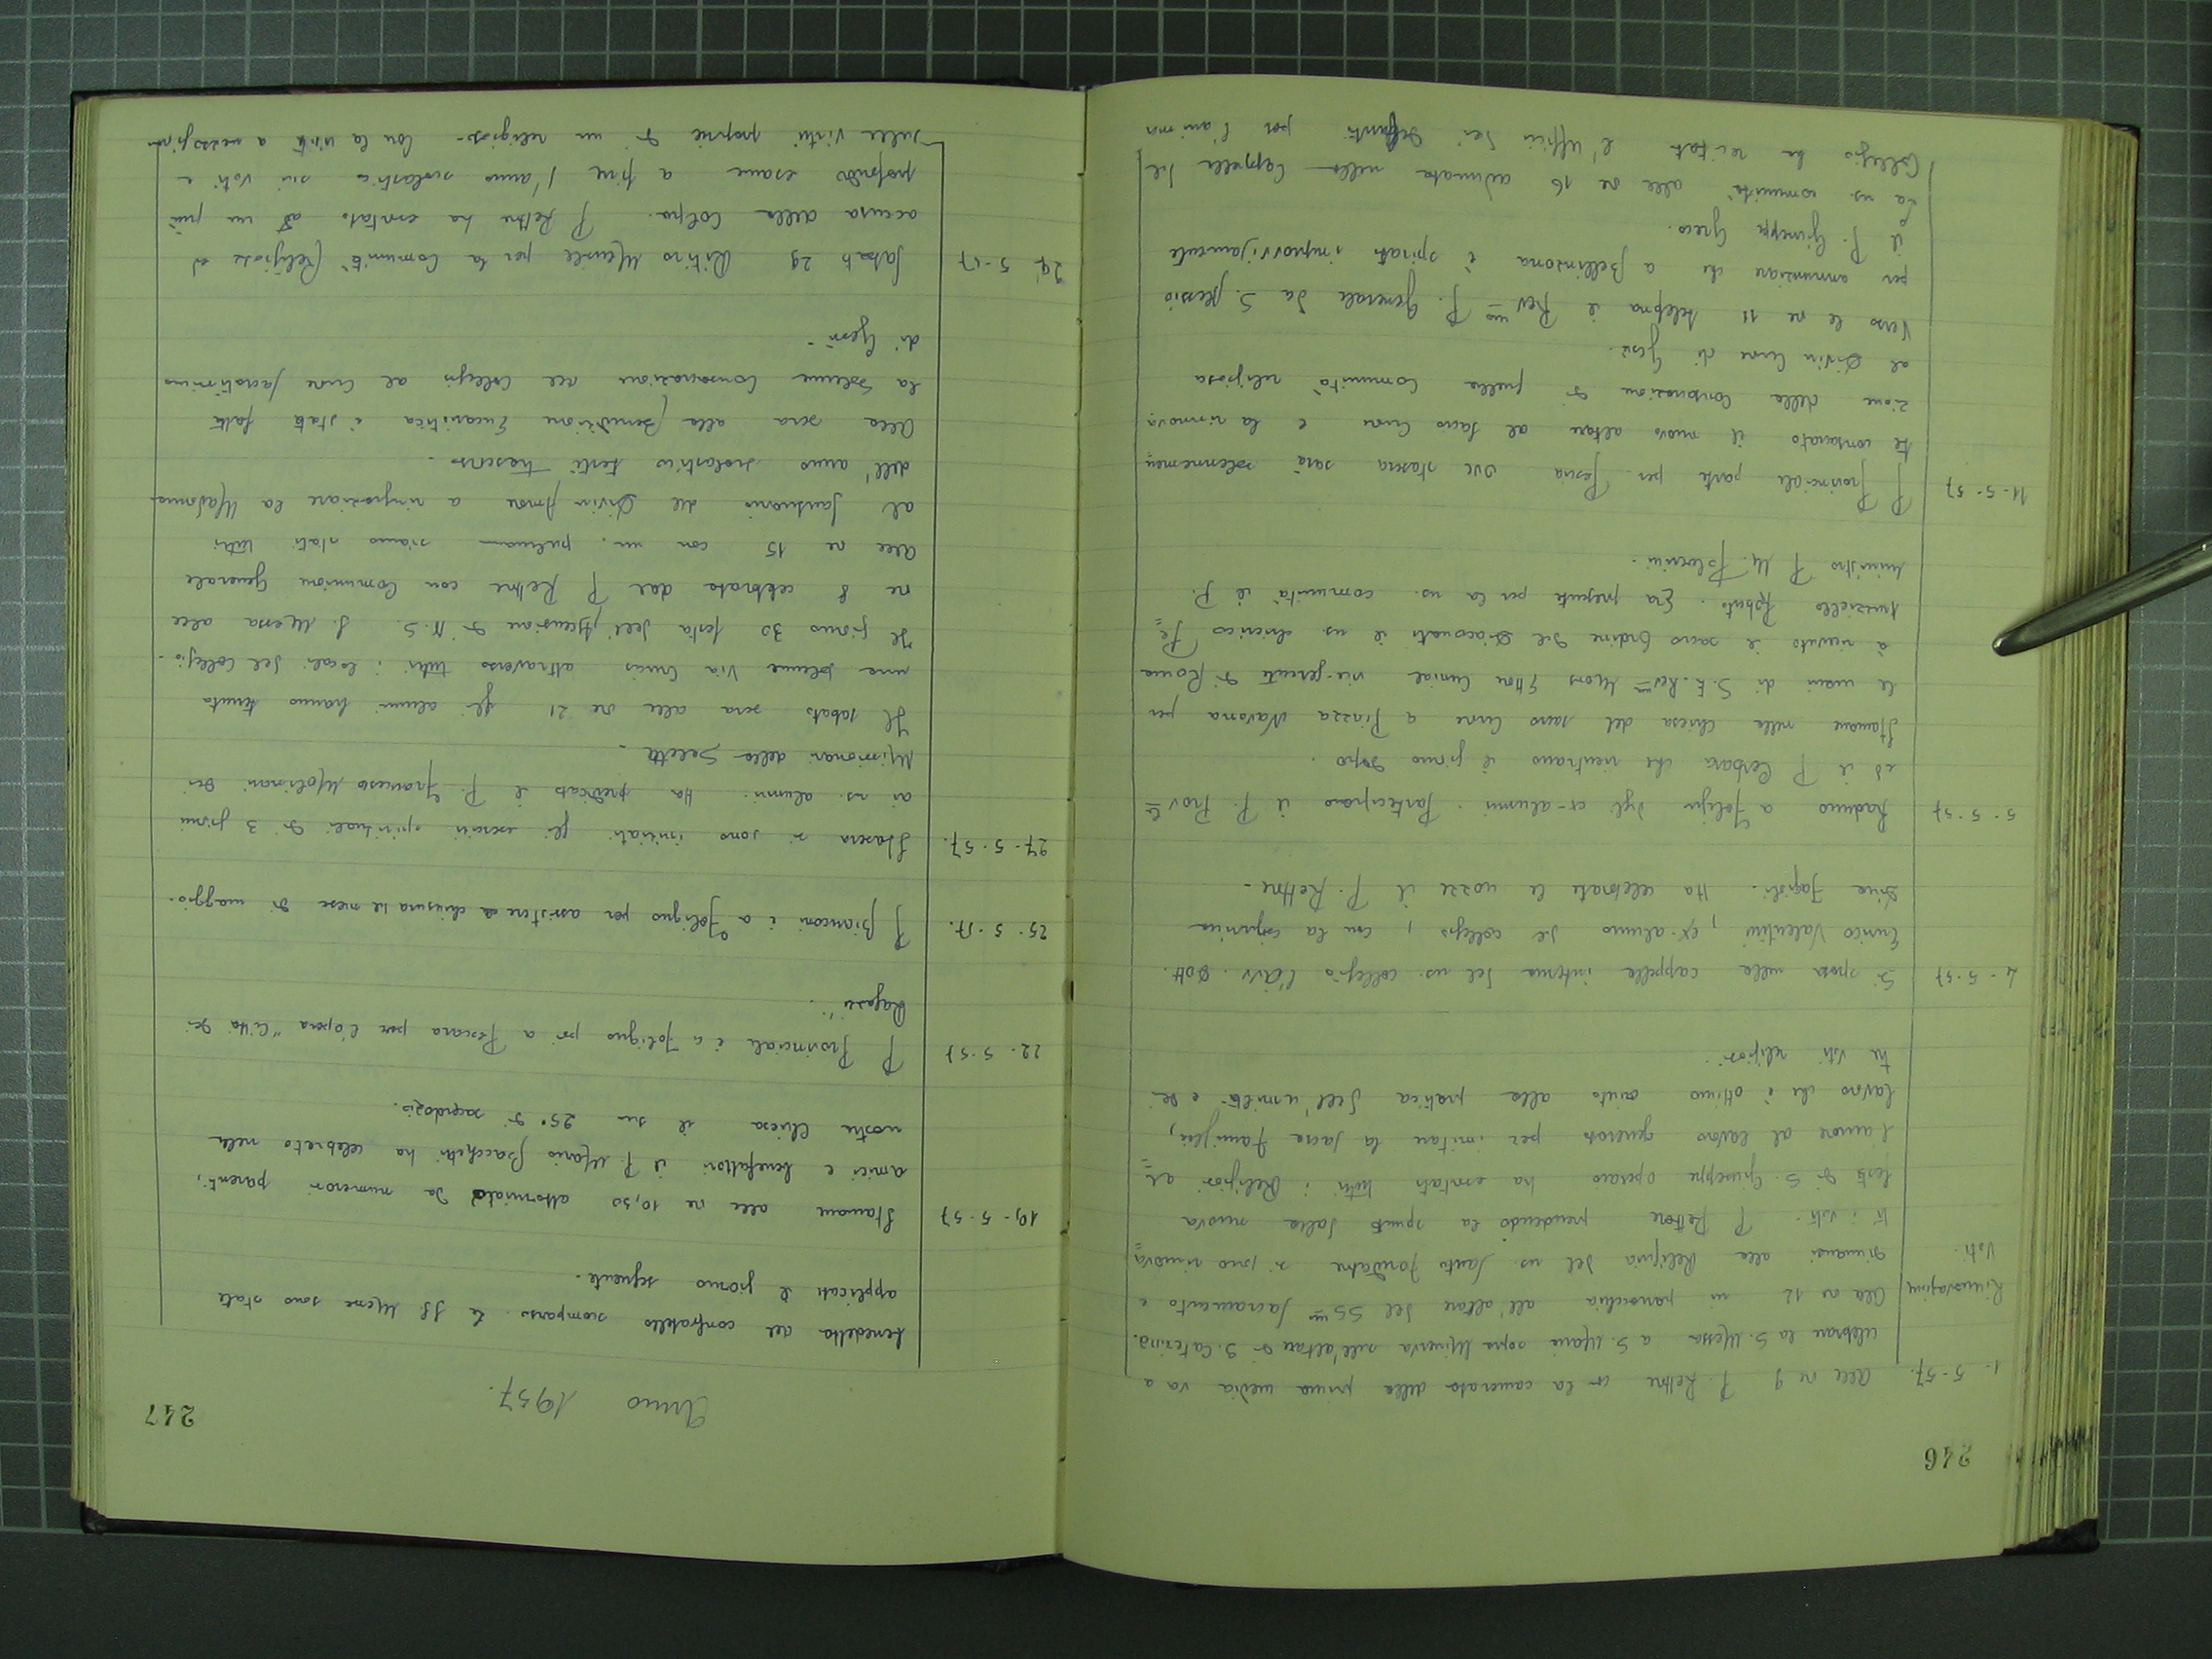 246
1-5-57. Alle ore 9 P. Rettore con la camerata della prima media va a
celebrare la S. Messa a S. Maria sopra Minerva sull'altare di S. Caterina.
Rinnovazione Alle ore 12 in parrocchia all'altare del SS.mo Sacramento e
Voti. dinanzi alla Reliquia del ns. Santo Fondatore si sono rinnova=
ti i voti. P. Rettore prendendo lo spunto dalla nuova
festa di S. Giuseppe operaio ha esortato tutti i Religiosi al=
l'amore al lavoro generoso per imitare la Sacra Famiglia,
lavoro che è ottimo aiuto alla pratica dell'umiltà e dei
tre voti religiosi.
4-5-57 Si sposa nella cappella interna del ns. collegio l'Avv. Dott.
Enrico Valentini, ex-alunno del collegio, con la signorina
Fagioli. Ha celebrato le nozze il P. Rettore.
5-5-57 Raduno a Foligno degli ex-alunni. Partecipano il P. Prov.le
ed il P. Cerbara che rientrano il giorno dopo.
Stamane nella chiesa del sacro Cuore a Piazza Navona per
le mani di S.E. Rev.ma Mons Ettore Cunial vice-gerente di Roma
à ricevuto il sacro Ordine del Diaconato il ns chierico Pe=
truzziello Roberto. Era presente per la ns. comunità il P.
Ministro P. M. Polacchini.
11-5-57 P. Provinciale parte per Pescia ove stasera sarà solennemen=
te consacrato il nuovo altare al Sacro Cuore e la rinnova=
zione della Consacrazione di quella Comunità religiosa
al Divin Cuore di Gesù.
Verso le ore 11 telefona il Rev.mo P. Generale da S. Alessio
per annunziare che a Bellinzona è spirato improvvisamente
il P. Giuseppe Greco.
La ns. comunità alle ore 16 adunata nella Cappella del
Collegio ha recitato l'Ufficio dei Defunti per l'anima
247
Anno 1957.
benedetta del confratello scomparso. Le SS. Messe sono state
applicate il giorno seguente.
19-5-57 Stamane alle ore 10,30 attorniato da numerosi parenti,
amici e benefattori il P. Mario Bacchetti ha celebrato nella
nostra Chiesa il suo 25° di sacerdozio.
22-5-57 P. Provinciale è a Foligno e poi a Pescara per l'opera "Città dei
Ragazzi".
25-5-57. P. Bianconi è a Foligno per assistere a chiusura del mese di maggio.
27-5-57. Stasera si sono iniziati gli esercizi spirituali di 3 giorni
ai ns. alunni. Ha predicato il P. Francesco Molinari dei
Missionari della Salette.
Il sabato sera alle ore 21 gli alunni hanno tenuto
una solenne Via Crucis attraverso tutti i locali del Collegio.
Il giorno 30 festa dell'Ascensione di N.S. S. Messa alle
ore 8 celebrata dal P. Rettore con Comunione Generale
Alle ore 15 con un pulman siamo stati tutti
al Santuario del Divin Amore a ringraziare la Madonna
dell'anno scolastico testè trascorso.
Alla sera alla Benedizione Eucaristica è stata fatta
la Solenne Consacrazione del Collegio al Cuore Sacratissimo
di Gesù.
29-5-57 Sabato 29 Ritiro Mensile per la Comunità Religiosa ed
accusa della Colpa. P. Rettore ha esortato ad un più
profondo esame a fine d'anno scolastico sui voti e
sulle virtù proprie di un religioso. Con la virtù